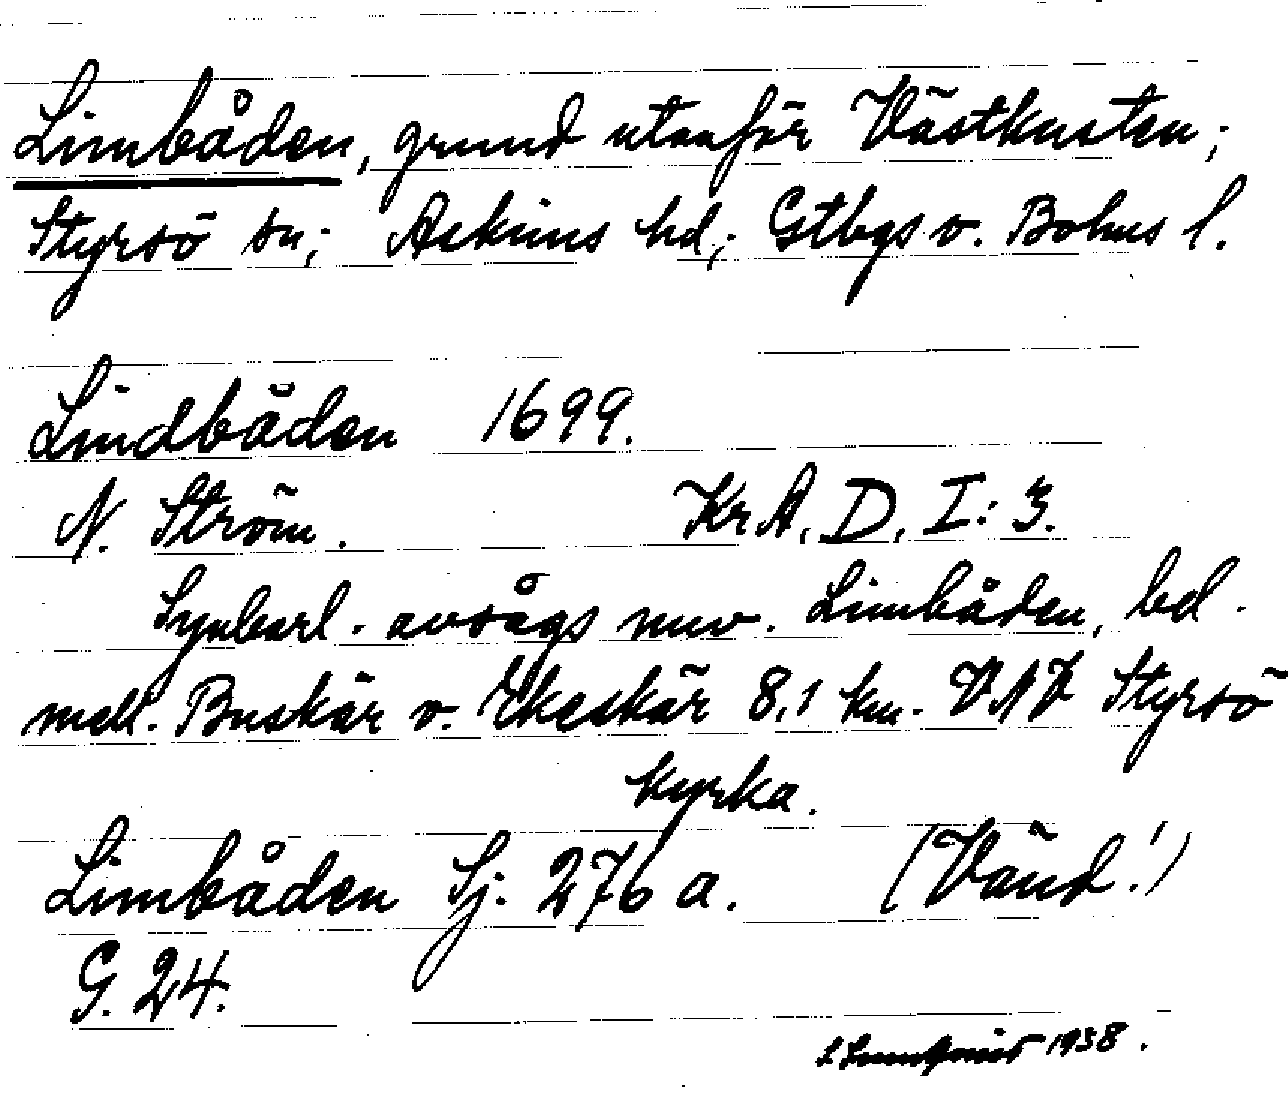 Limbåden, grund utanför Västkusten;
Styrsö sn; Askims hd; Gtbgs o. Bohus l.
Lindbåden 1699.
N. Ström. Kr A. D. I: 3.
Synbarl. avsågs nuv. Limbåden, bd.
mell. Buskär o. Ekeskär 8,1 km. VNV Styrsö
kyrka.
Limbåden Sj. 276 a. (Vänd!)
G. 24.
1938.